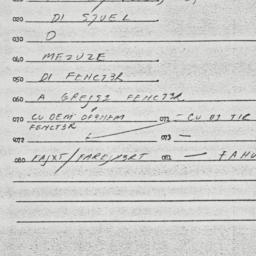 020 DI STUEL
030 O
040 MEZUZE
050 DI FENCTƏR
060 A GREISE FENCTƏR
070 CU DEM OFENEM FENCTƏR 071 - CU DI TIR
072 073 -
080 FAJXT/FARE/